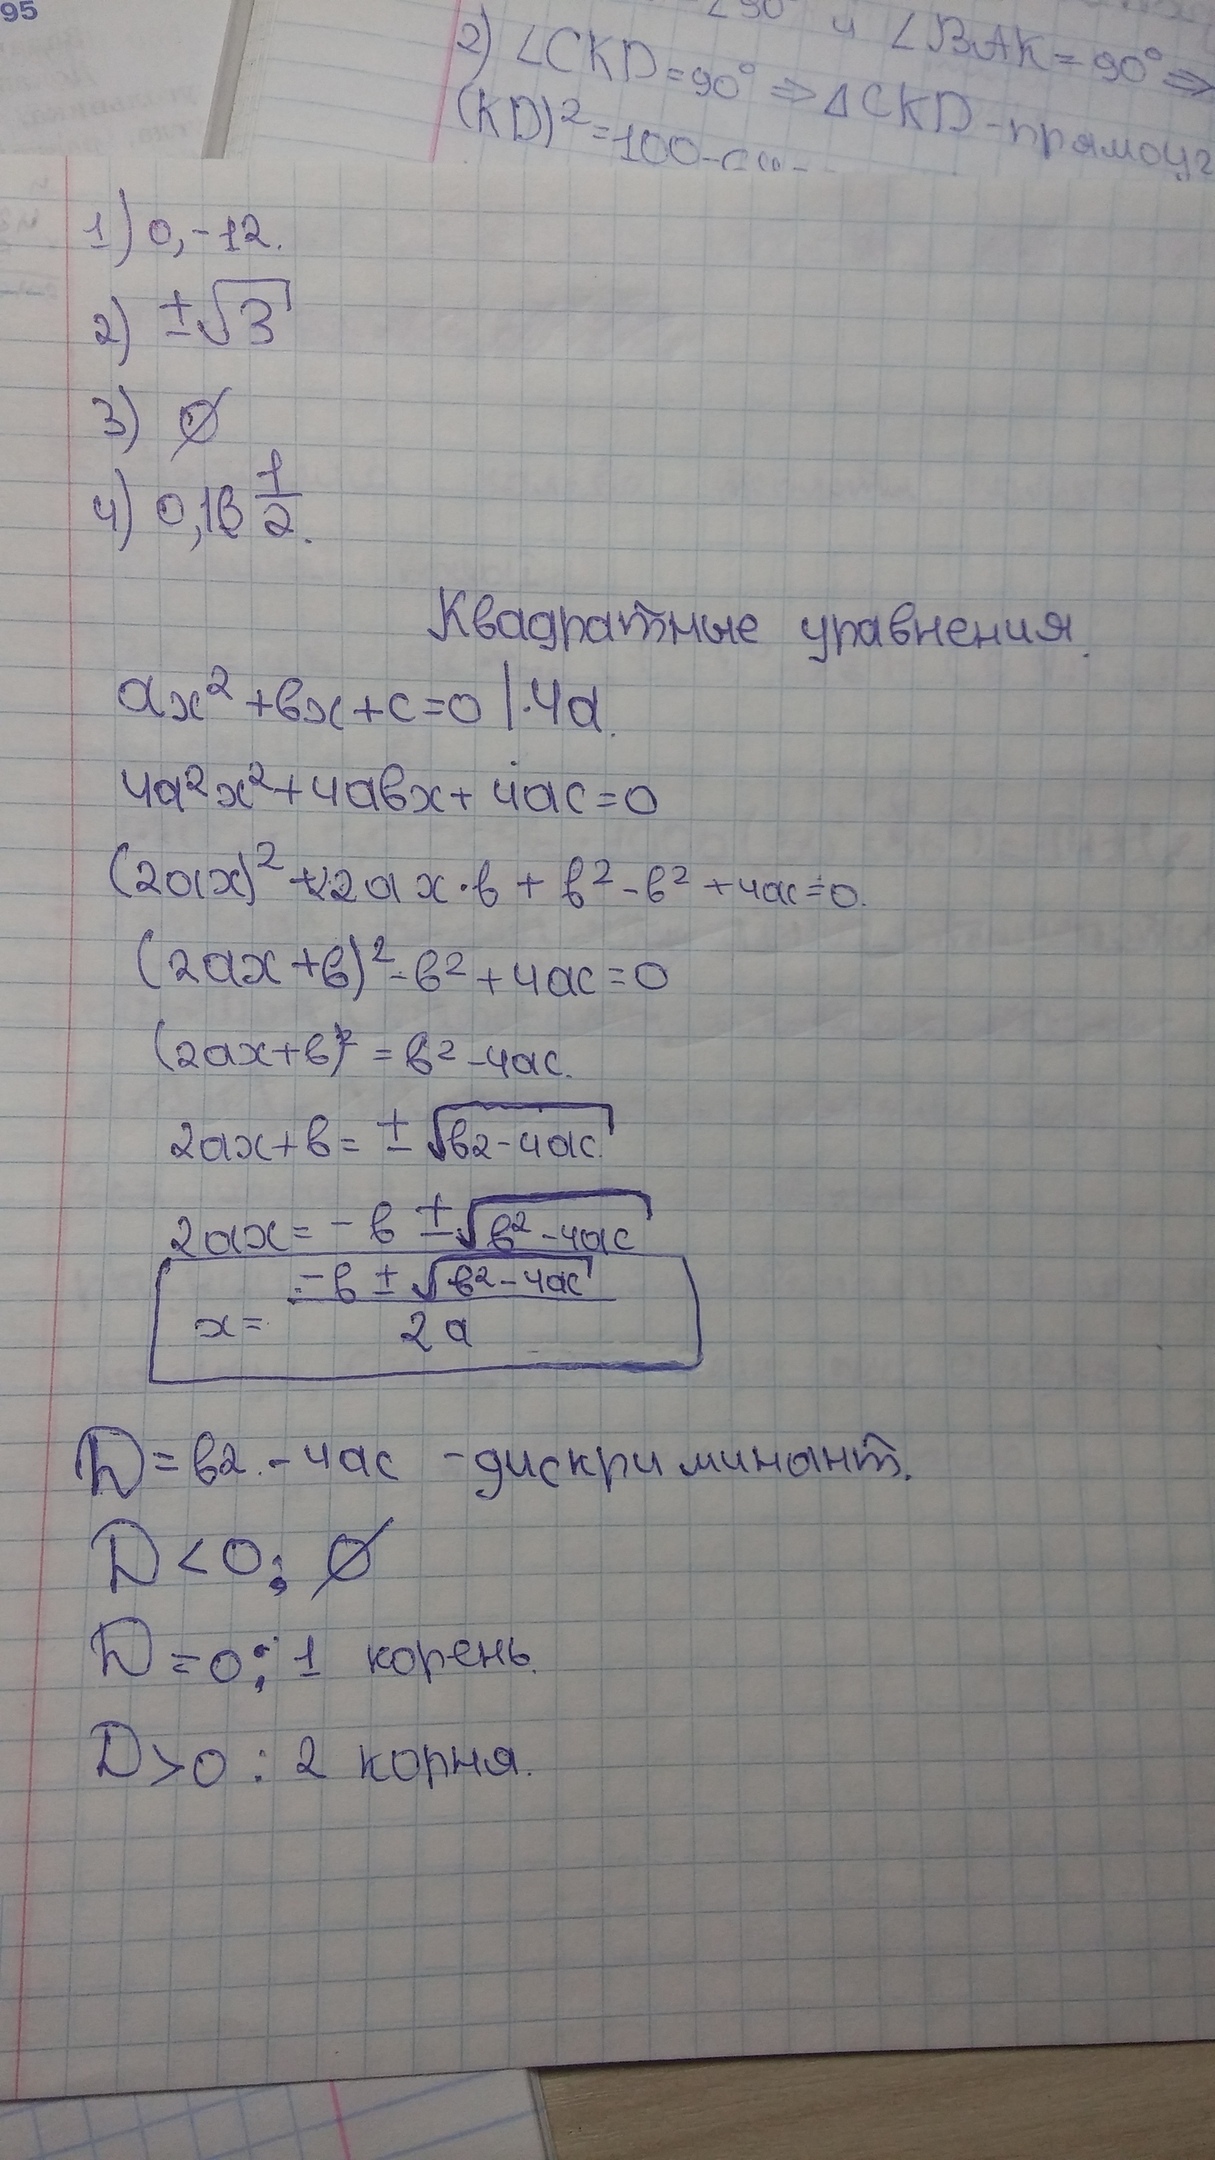 95
2) ∠CKD=90° ⇒ ΔCKD-прямоуг
и ∠BAK=90° ⇒
(KD)²=100-
1) 0,-12.
2) ±√3
3) ∅
4) 0,18 1/2.
Квадратные уравнения.
ax²+вx+c=0 |·4a.
4a²x²+4aвx+4ac=0
(2ax)²+2·2ax·в+в²-в²+4ac=0.
(2ax+в)²-в²+4ac=0
(2ax+в)²=в²-4ac.
2ax+в=±√в2-4ac
2ax=-в±√в²-4ac
x= -в±√в²-4ac / 2a
D=в2.-4ac -дискриминант.
D<0; ∅
D=0: 1 корень.
D>0: 2 корня.